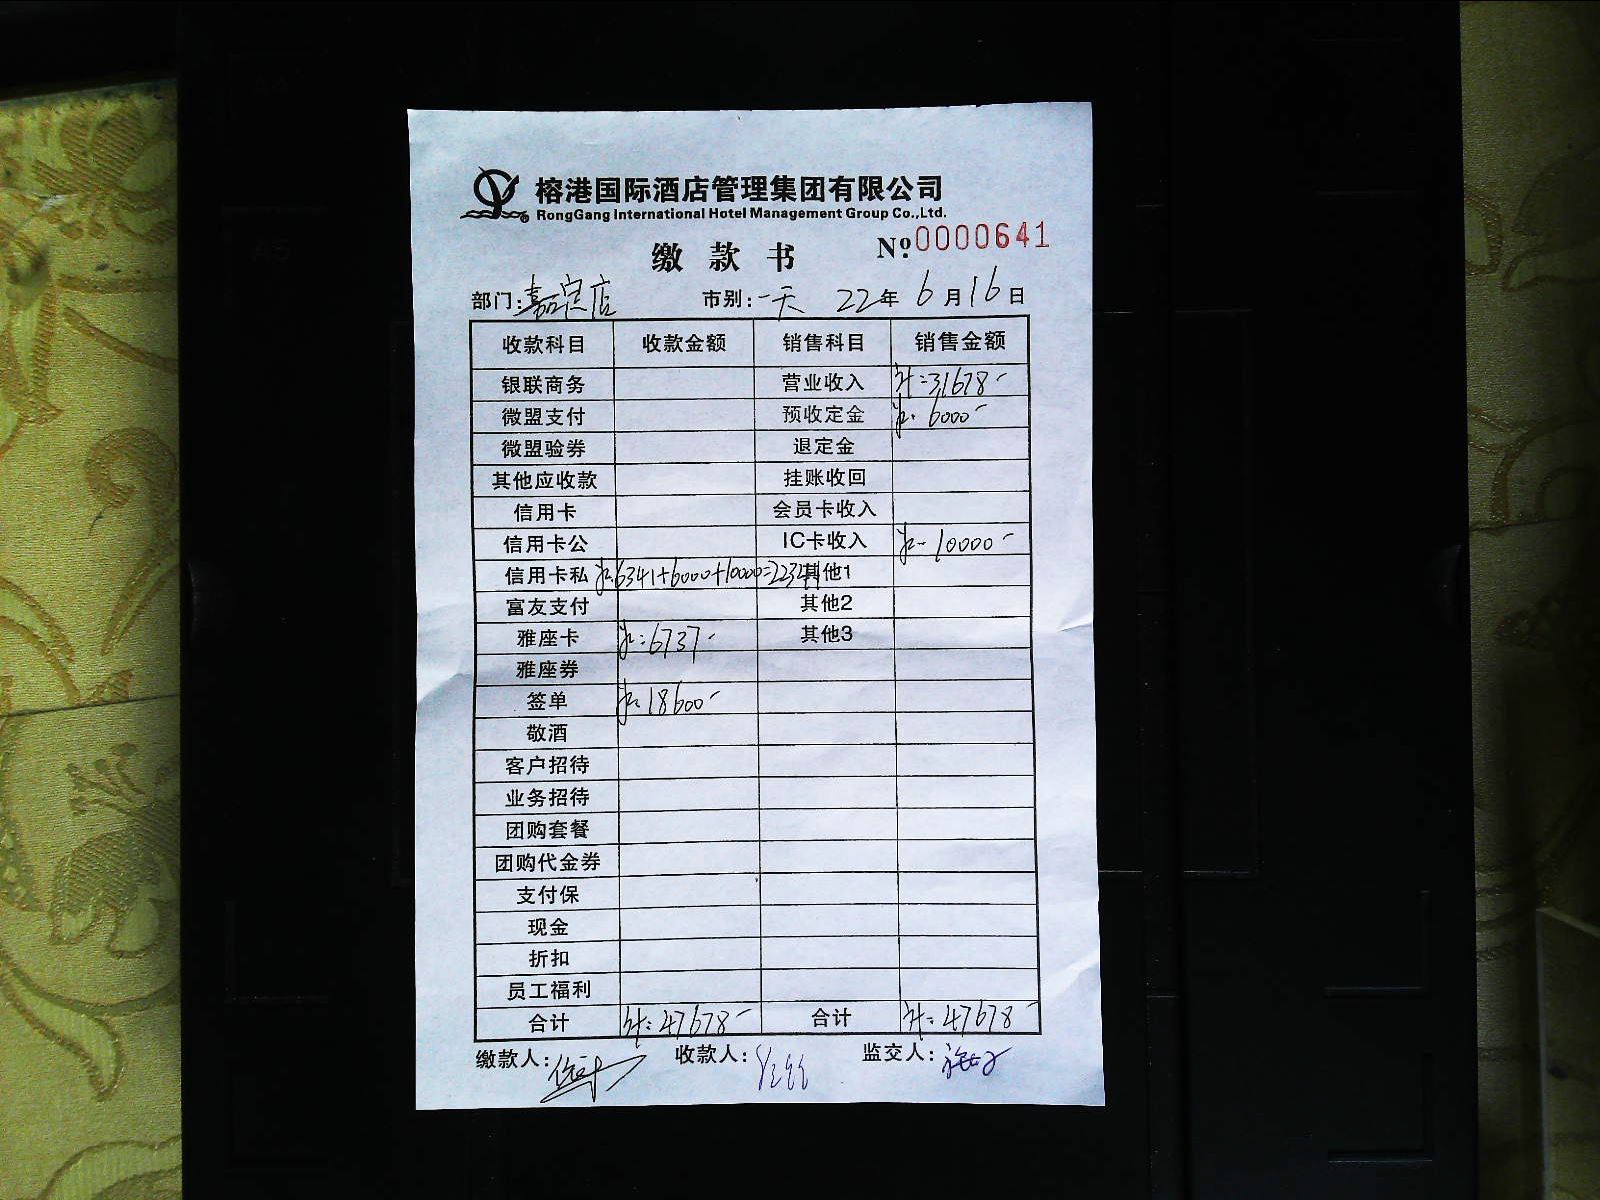 榕港国际酒店管理集团有限公司
RongGang International Hotel Management Group Co.,Ltd.
缴款书 No.0000641
部门:嘉定店 市别:一天 22年6月16日
收款科目 收款金额 销售科目 销售金额
银联商务 营业收入 计:31678-
微盟支付 预收定金 6000-
微盟验券 退定金
其他应收款 挂账收回
信用卡 会员卡收入
信用卡公 IC卡收入 10000-
信用卡私 6341+6000+10000=22341 其他1
富友支付 其他2
雅座卡 6737- 其他3
雅座券
签单 18600-
敬酒
客户招待
业务招待
团购套餐
团购代金券
支付保
现金
折扣
员工福利
合计 计:47678- 合计 计:47678-
缴款人: 收款人: 监交人: